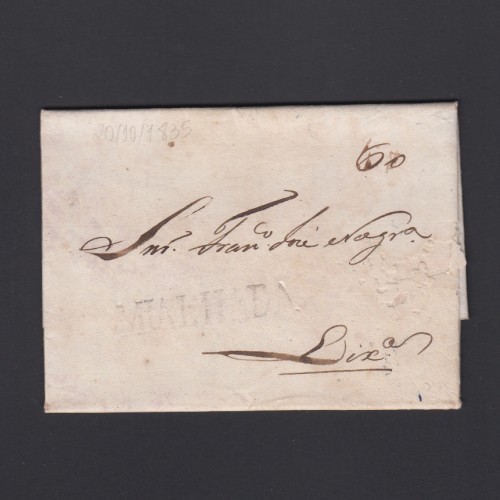 20/10/1835
60
Snr. Franco. José Negrão
MIALHADA
Lixa.